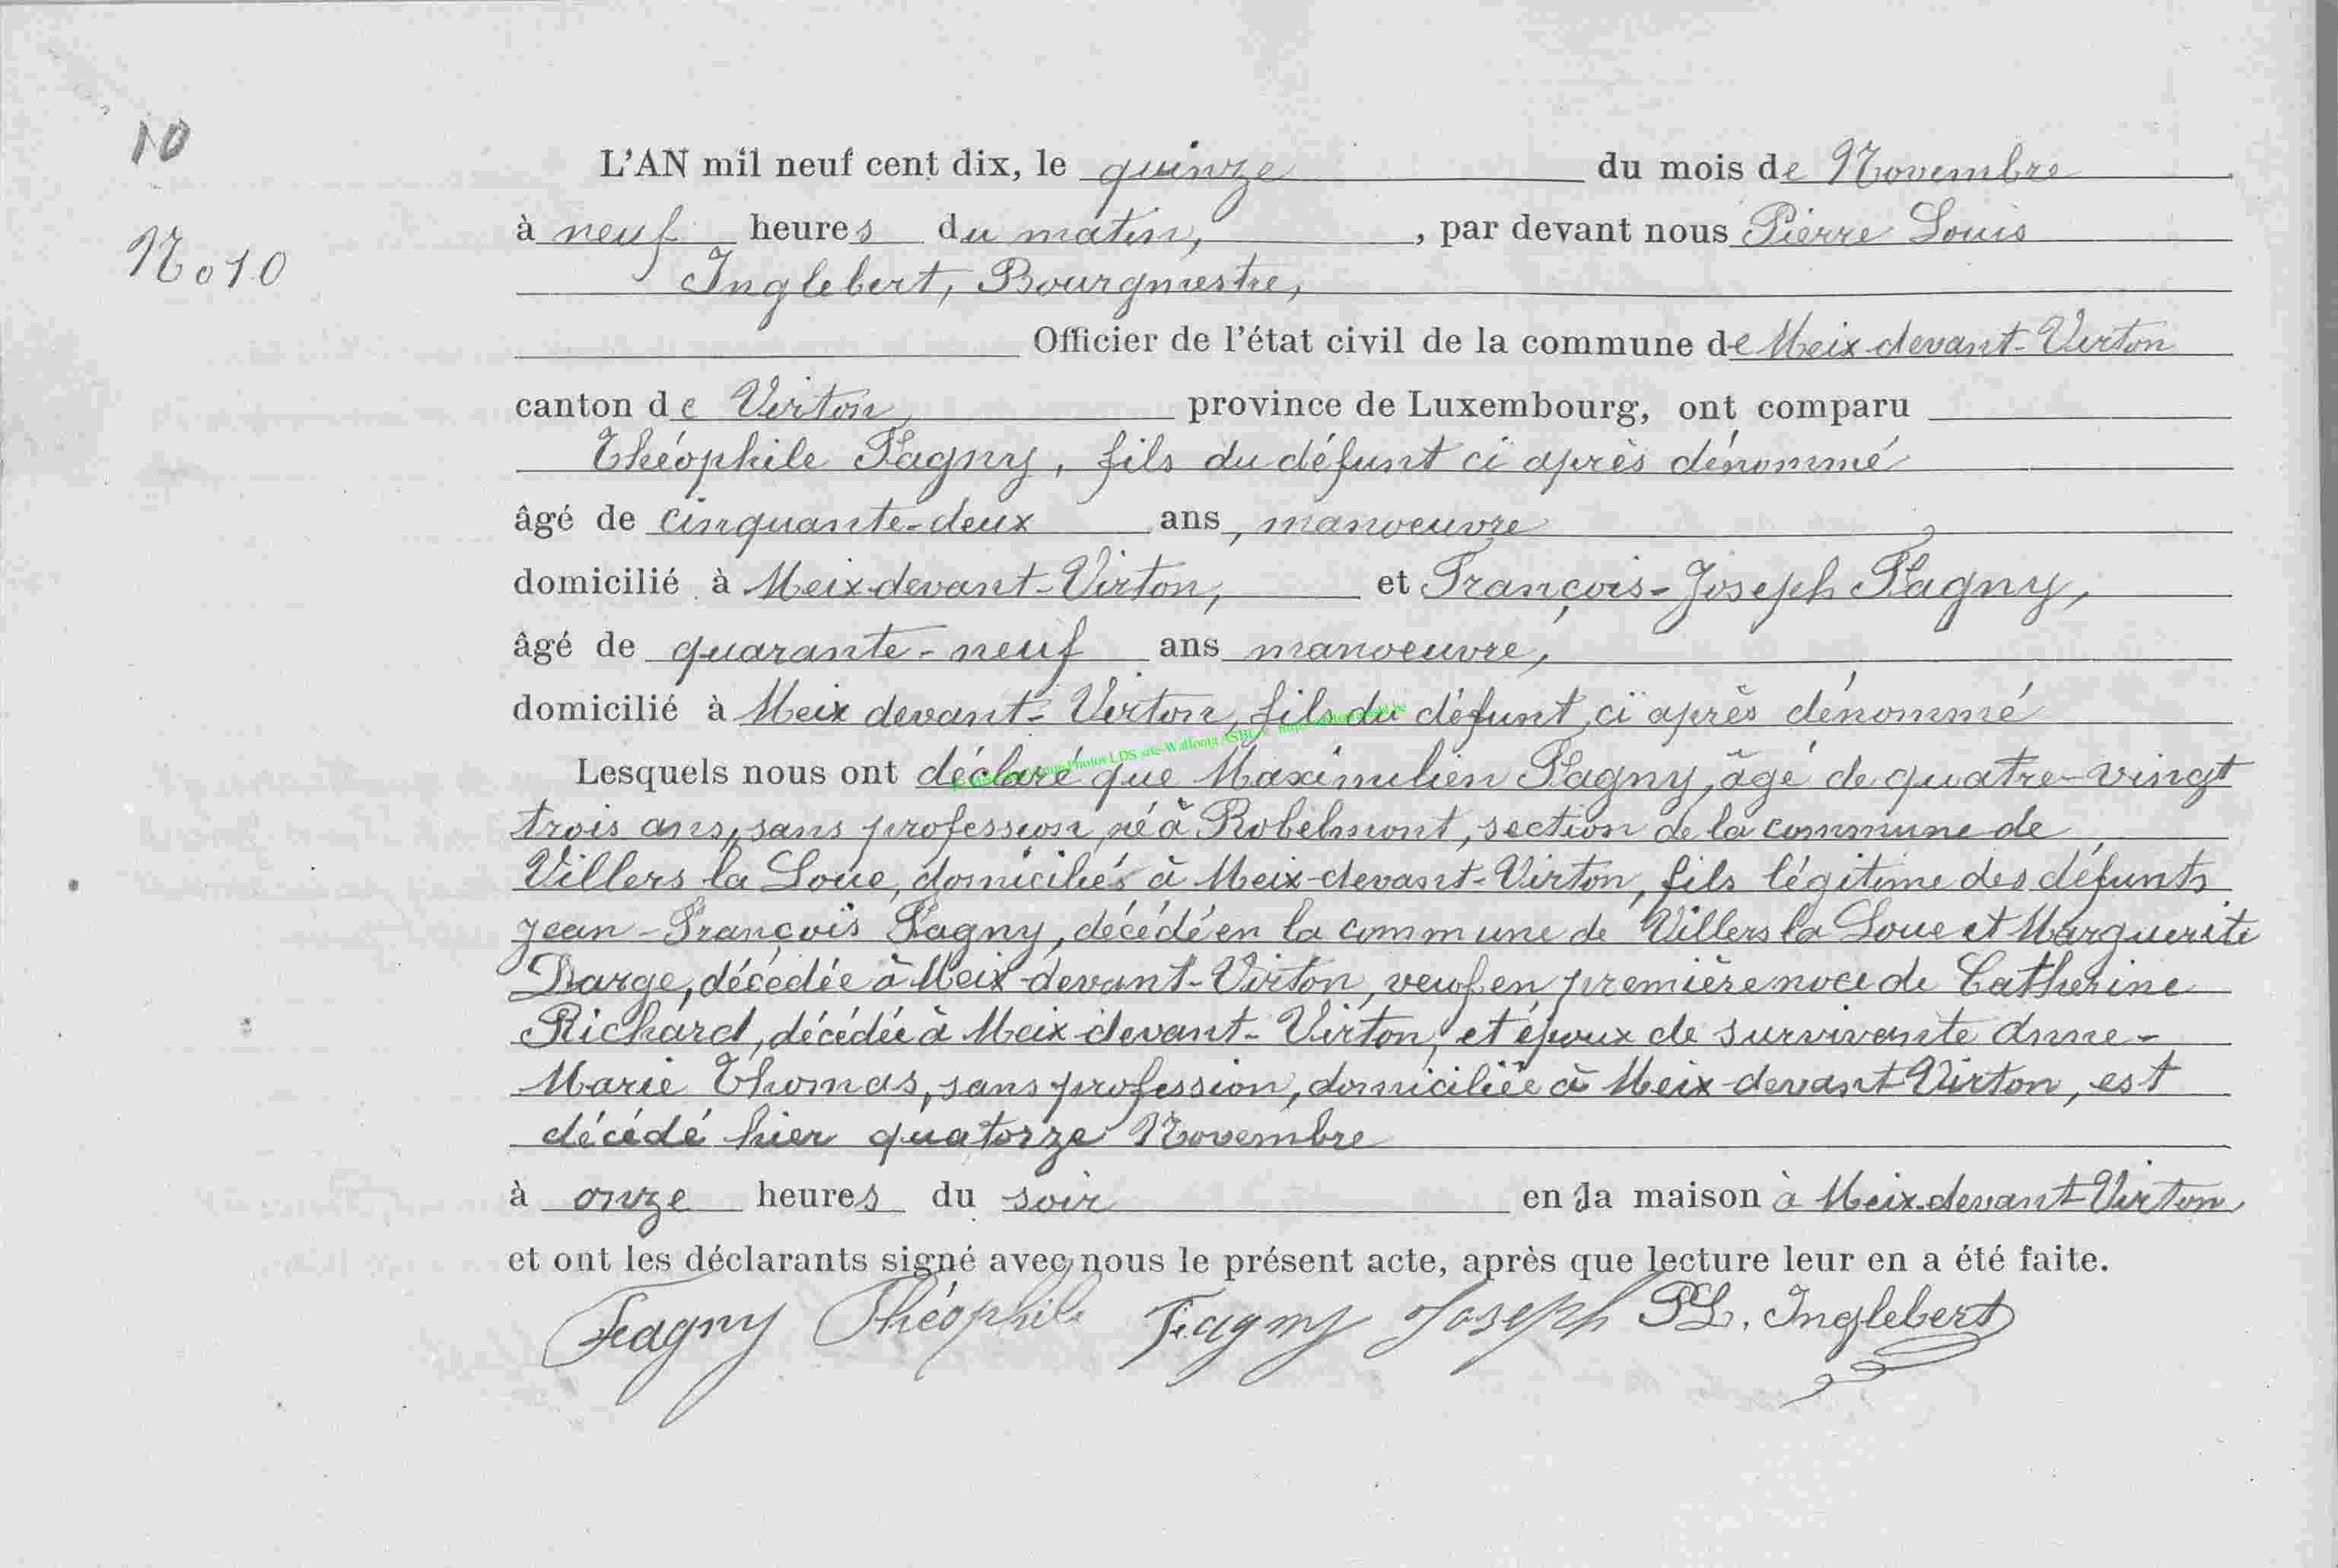 10
No 10
L'AN mil neuf cent dix, le quinze du mois de Novembre
à neuf heures du matin, , par devant nous Pierre Louis
Inglebert, Bourgmestre,
Officier de l'état civil de la commune de Meix devant-Virton
canton de Virton, province de Luxembourg, ont comparu
Théophile Fagny, fils du défunt ci après dénommé
âgé de cinquante-deux ans, manoeuvre
domicilié à Meix devant-Virton, et François-Joseph Fagny,
âgé de quarante-neuf ans manoeuvre,
domicilié à Meix devant-Virton, fils du défunt ci après dénommé
Lesquels nous ont déclaré que Maximilien Fagny, âgé de quatre-vingt
trois ans, sans profession, né à Robelmont, section de la commune de
Villers la Loue, domiciliés à Meix-devant-Virton, fils légitime des défunts
Jean-François Fagny, décédé en la commune de Villers la Loue et Marguerite
Darge, décédée à Meix-devant-Virton, veuf en première noce de Catherine
Richard, décédée à Meix devant-Virton, et époux de survivante Anne-
Marie Thomas, sans profession, domiciliée à Meix-devant Virton, est
décédé hier quatorze Novembre
à onze heures du soir en la maison à Meix-devant-Virton,
et ont les déclarants signé avec nous le présent acte, après que lecture leur en a été faite.
Fagny Théophile Fagny Joseph PL. Inglebert